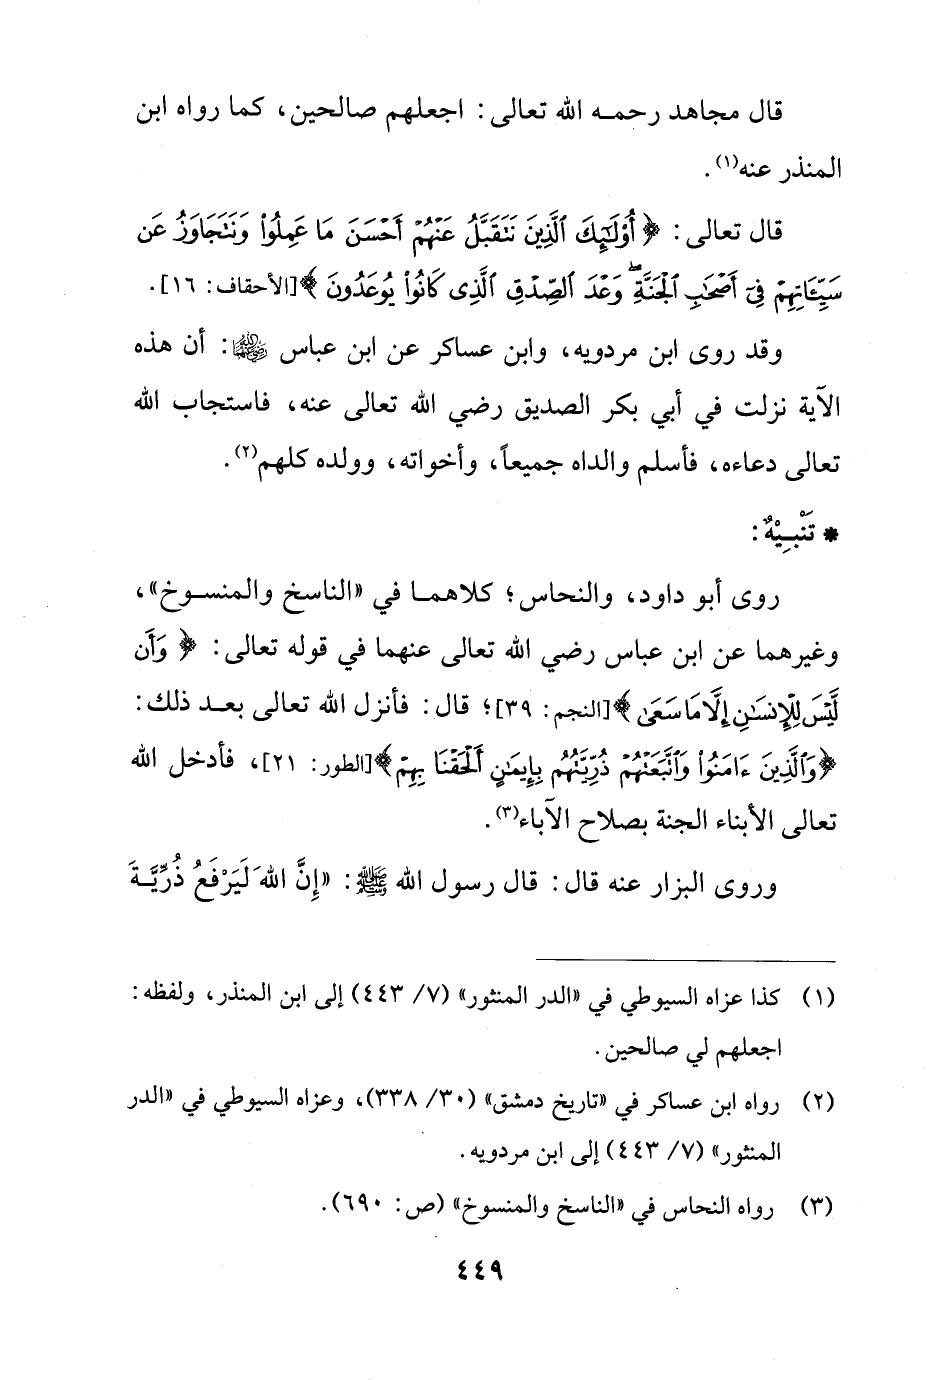 قال مجاهد رحمه الله تعالى: اجعلهم صالحين، كما رواه ابن
المنذر عنه(١).
قال تعالى: ﴿أُوْلَٰٓئِكَ ٱلَّذِينَ نَتَقَبَّلُ عَنْهُمْ أَحْسَنَ مَا عَمِلُواْ وَنَتَجَاوَزُ عَن
سَيِّـَٔاتِهِمْ فِىٓ أَصْحَٰبِ ٱلْجَنَّةِ ۖ وَعْدَ ٱلصِّدْقِ ٱلَّذِى كَانُواْ يُوعَدُونَ﴾[الأحقاف: ١٦].
وقد روى ابن مردويه، وابن عساكر عن ابن عباس ﵄: أن هذه
الآية نزلت في أبي بكر الصديق رضي الله تعالى عنه، فاستجاب الله
تعالى دعاءه، فأسلم والداه جميعاً، وأخواته، وولده كلهم(٢).
* تَنْبِيْهٌ:
روى أبو داود، والنحاس؛ كلاهما في «الناسخ والمنسوخ»،
وغيرهما عن ابن عباس رضي الله تعالى عنهما في قوله تعالى: ﴿وَأَن
لَّيْسَ لِلْإِنسَٰنِ إِلَّا مَا سَعَىٰ﴾[النجم: ٣٩]؛ قال: فأنزل الله تعالى بعد ذلك:
﴿وَٱلَّذِينَ ءَامَنُواْ وَٱتَّبَعَتْهُمْ ذُرِّيَّتُهُم بِإِيمَٰنٍ أَلْحَقْنَا بِهِمْ﴾[الطور: ٢١]، فأدخل الله
تعالى الأبناء الجنة بصلاح الآباء(٣).
وروى البزار عنه قال: قال رسول الله ﷺ: «إِنَّ اللهَ لَيَرْفَعُ ذُرِّيَّةَ
(١) كذا عزاه السيوطي في «الدر المنثور» (٧/ ٤٤٣) إلى ابن المنذر، ولفظه:
اجعلهم لي صالحين.
(٢) رواه ابن عساكر في «تاريخ دمشق» (٣٠/ ٣٣٨)، وعزاه السيوطي في «الدر
المنثور» (٧/ ٤٤٣) إلى ابن مردويه.
(٣) رواه النحاس في «الناسخ والمنسوخ» (ص: ٦٩٠).
٤٤٩